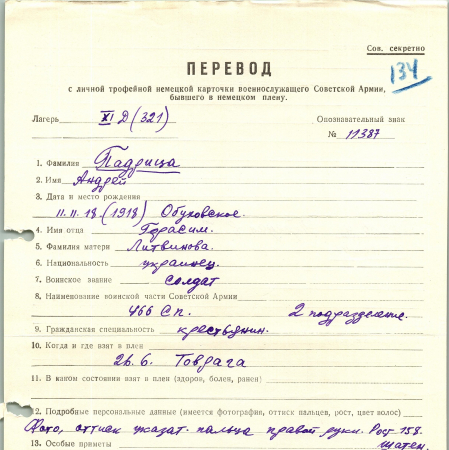 Сов. секретно
134
ПЕРЕВОД
с личной трофейной немецкой карточки военнослужащего Советской Армии,
бывшего в немецком плену.
Лагерь XI Д (321) Опознавательный знак
№ 11387
1. Фамилия Падрица
2. Имя Андрей
3. Дата и место рождения
11.11.18 (1918) Обуховское.
4. Имя отца Герасим.
5. Фамилия матери Литвинова.
6. Национальность украинец.
7. Воинское звание солдат
8. Наименование воинской части Советской Армии
466 С п. 2 подразделение.
9. Гражданская специальность крестьянин.
10. Когда и где взят в плен
26.6. Товрага
11. В каком состоянии взят в плен (здоров, болен, ранен)
2. Подробные персональные данные (имеется фотография, оттиск пальцев, рост, цвет волос)
Фото, оттиск указат. пальца правой руки. Рост 158.
13. Особые приметы шатен.